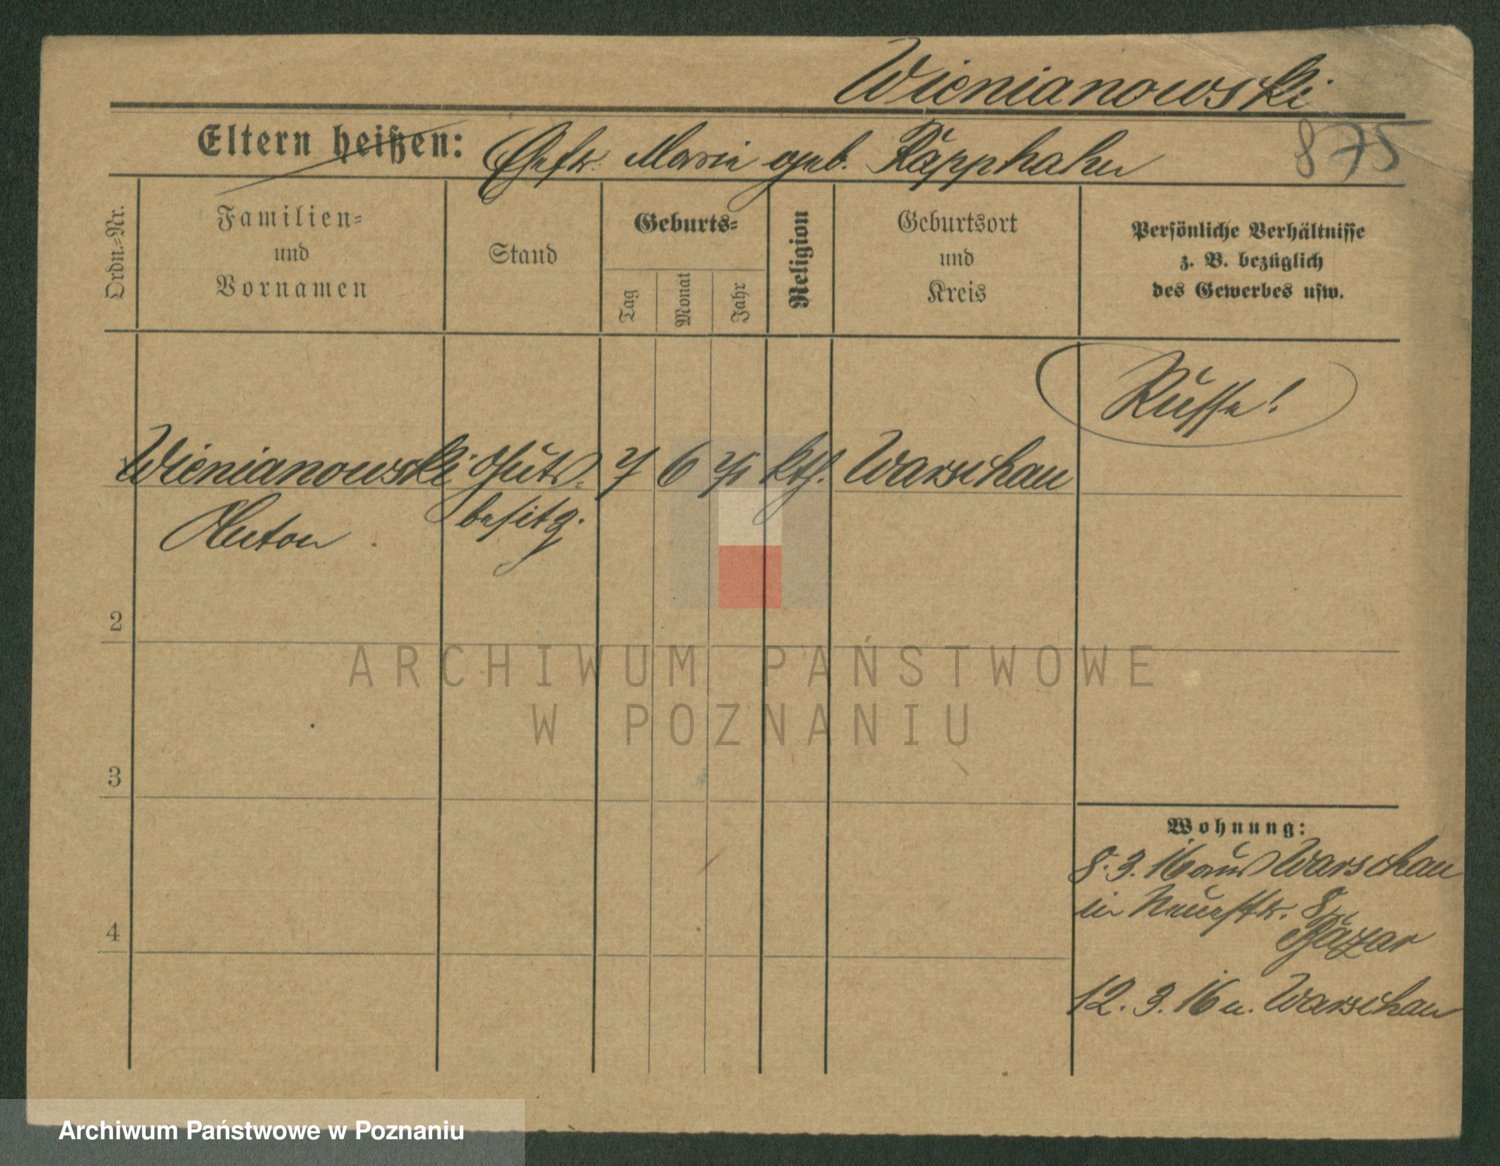 Wienianowski
Eltern heißen: Ehefr. Marie geb. Rapphahn
875
Ordn.=Nr.
Familien=
und
Vornamen
Stand
Geburts=
Tag
Monat
Jahr
Religion
Geburtsort
und
Kreis
Persönliche Verhältnisse
z. B. bezüglich
des Gewerbes usw.
Russe!
Wienianowski Guts= 7 6 75 kth. Warschau
Anton besitz.
2
3
4
Wohnung:
8.3.16 aus Warschau
in Neuestr. 8
Bazar
12.3.16 n. Warschau
ARCHIWUM PAŃSTWOWE
W POZNANIU
Archiwum Państwowe w Poznaniu